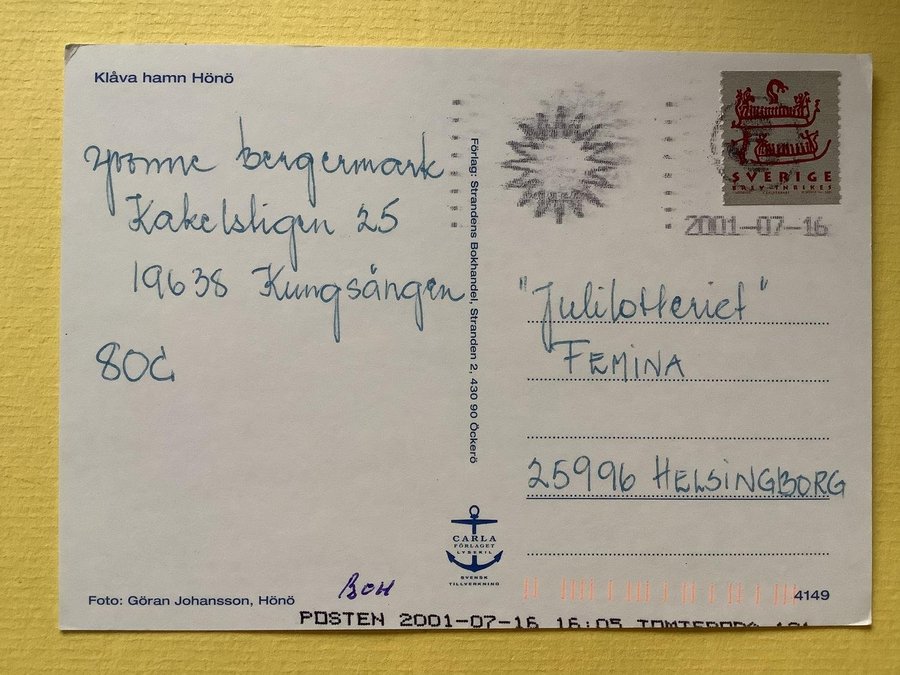 Klåva hamn Hönö
SVERIGE
BREV INRIKES
2001-07-16
Yvonne bergermark
Kakelstigen 25
19638 Kungsängen
80C
Förlag: Strandens Bokhandel, Stranden 2, 430 90 Öckerö
"Julilotteriet"
FEMINA
25996 HELSINGBORG
CARLA
FÖRLAGET
LYSEKIL
SVENSK
TILLVERKNING
Foto: Göran Johansson, Hönö
BOH
4149
POSTEN 2001-07-16 16:05 TOMTEBODA